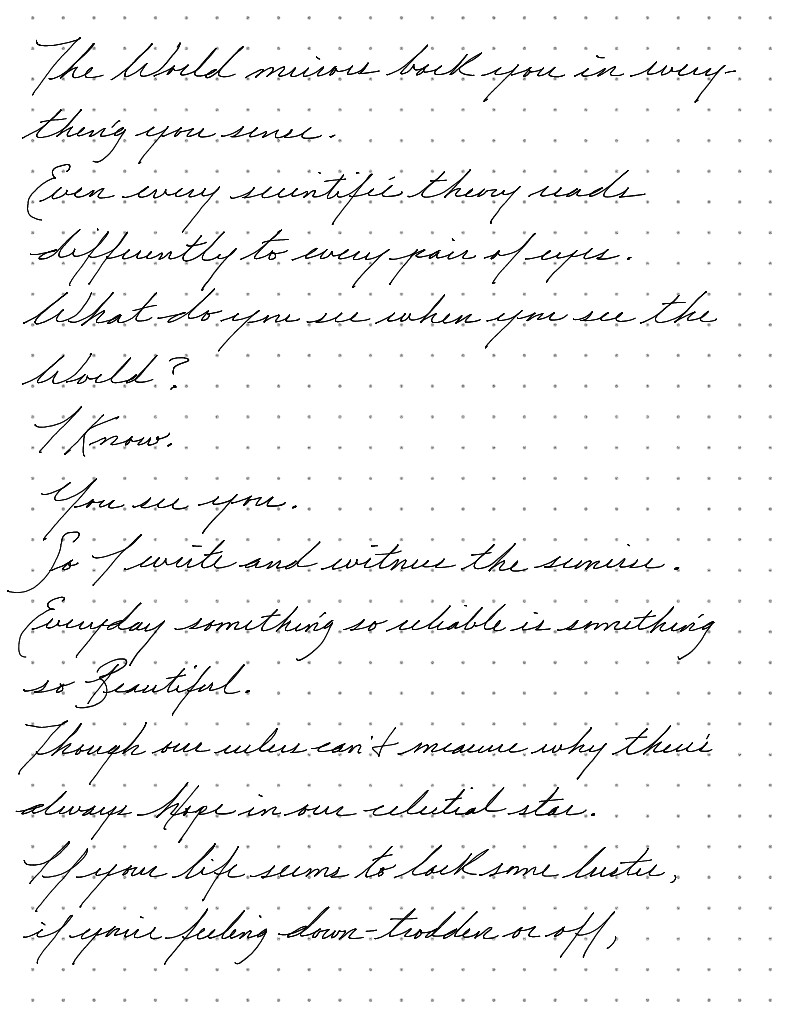 The World mirrors back you in every-
thing you sense.
Even every scientific theory reads
differently to every pair of eyes.
What do you see when you see the
World?
I Know.
You see you.
So I write and witness the sunrise.
Everyday something so reliable is something
so Beautiful.
Though our rulers can't measure why there's
always Hope in our celestial star.
If your life seems to lack some luster,
if you're feeling down-trodden or off,